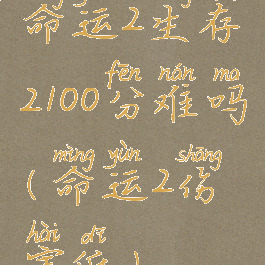 命运2生存
fēn nán ma
2100分难吗
mìng yùn shāng
(命运2伤
hài dī
害低)